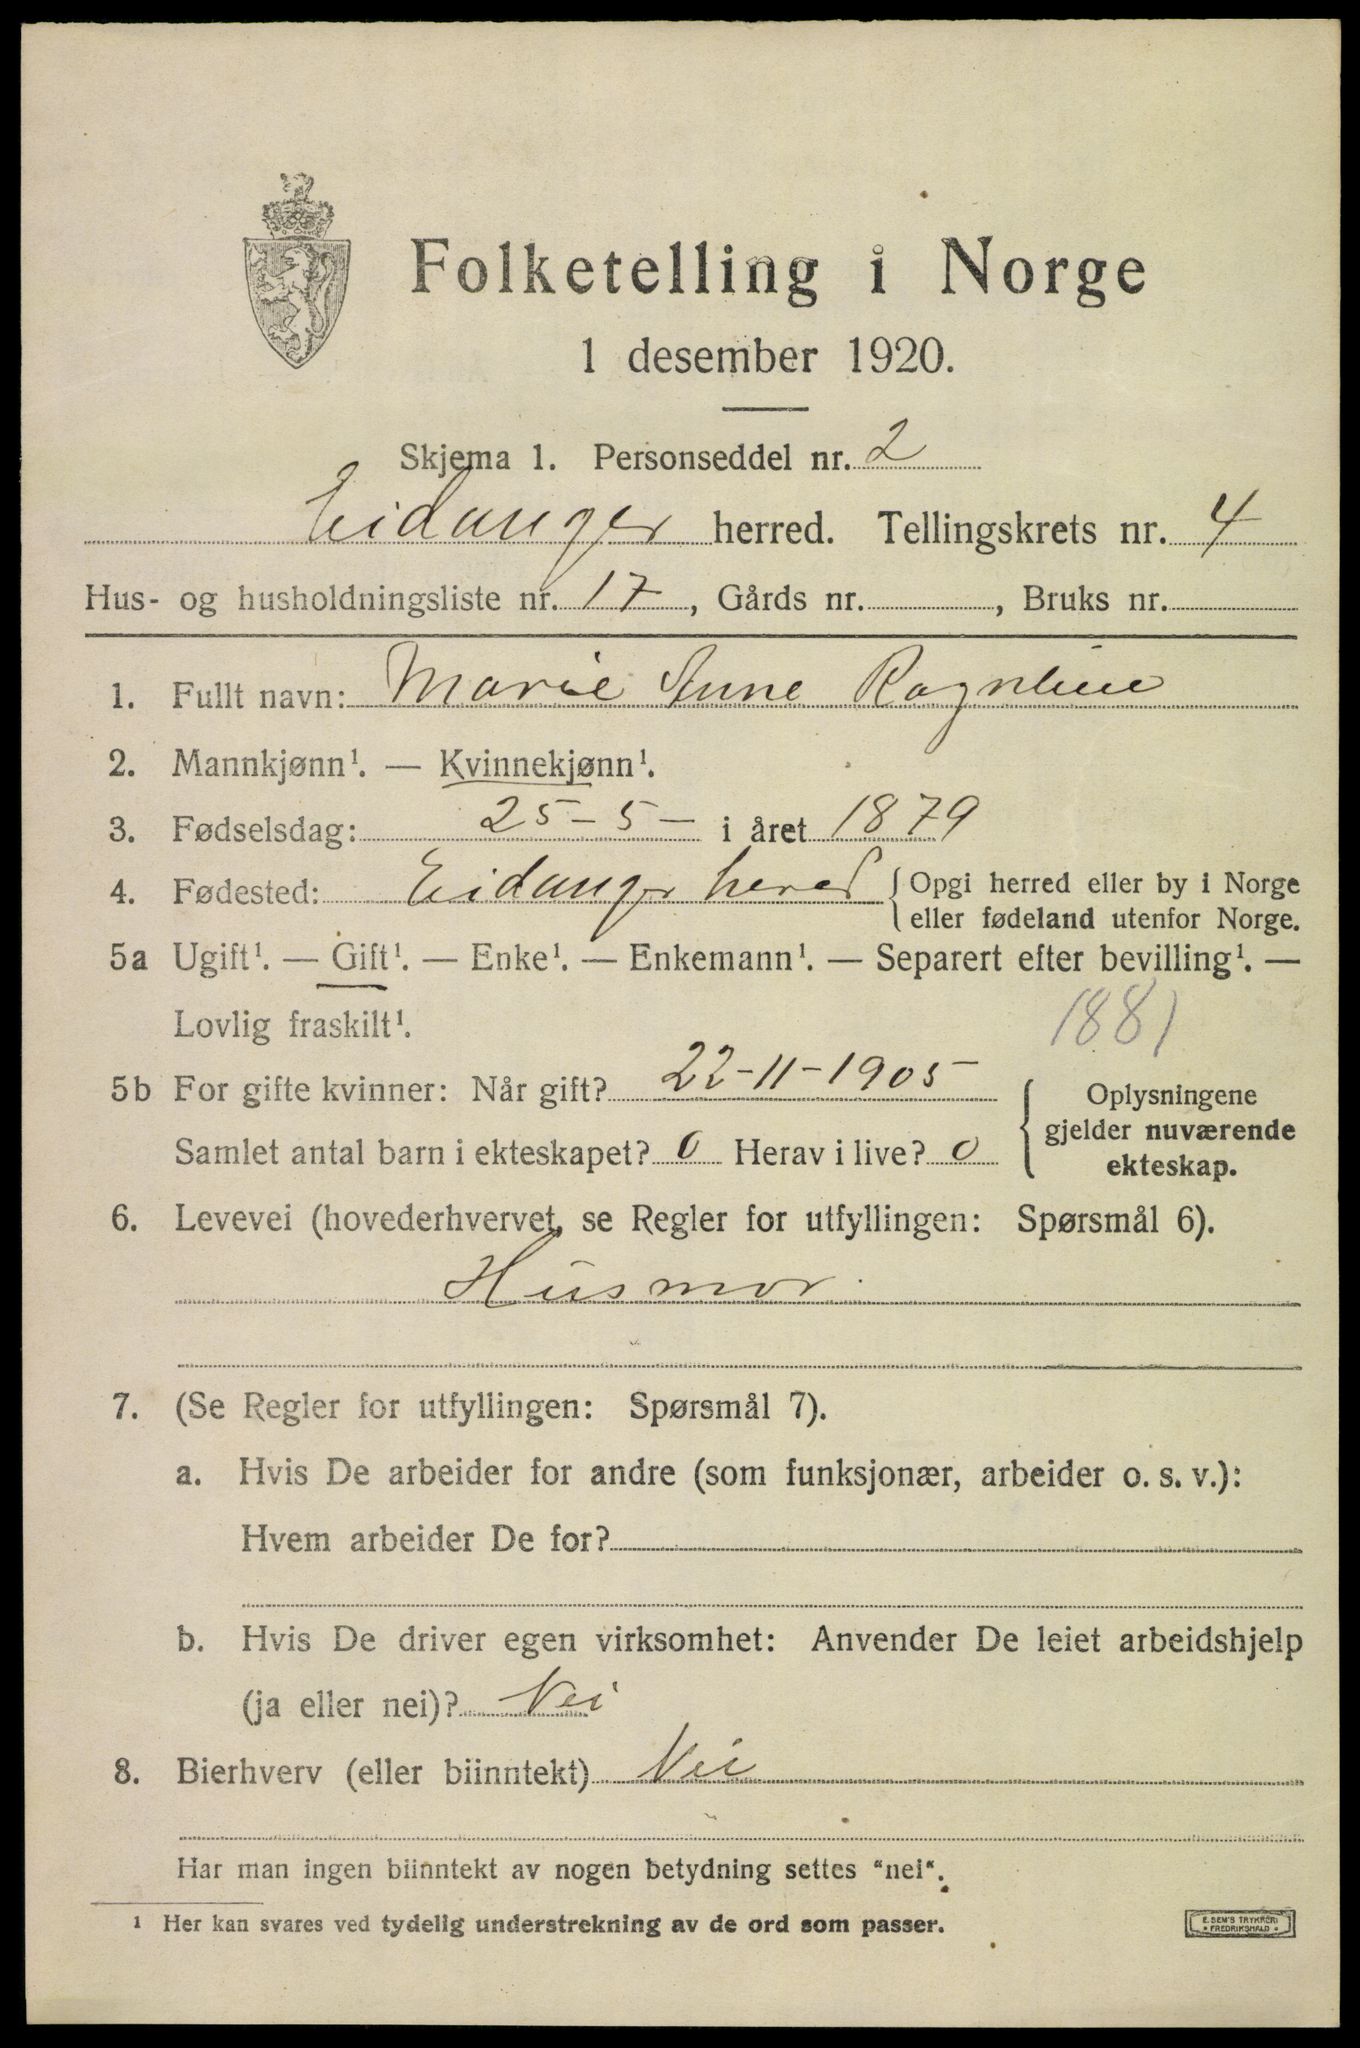 Folketelling i Norge
1 desember 1920.
Skjema 1. Personseddel nr. 2
Eidanger herred. Tellingskrets nr. 4
Hus- og husholdningsliste nr. 17, Gårds nr. , Bruks nr.
1. Fullt navn: Marie Anne Rognlien
2. Mannkjønn¹. — Kvinnekjønn¹.
3. Fødselsdag: 25-5- i året 1879
4. Fødested: Eidanger hered { Opgi herred eller by i Norge
eller fødeland utenfor Norge.
5a Ugift¹. — Gift¹. — Enke¹. — Enkemann¹. — Separert efter bevilling¹. —
Lovlig fraskilt¹.
1881
5b For gifte kvinner: Når gift? 22-11-1905
Samlet antal barn i ekteskapet? 0 Herav i live? 0
{ Oplysningene
gjelder nuværende
ekteskap.
6. Levevei (hovederhvervet, se Regler for utfyllingen: Spørsmål 6).
Husmor
7. (Se Regler for utfyllingen: Spørsmål 7).
a. Hvis De arbeider for andre (som funksjonær, arbeider o. s. v.):
Hvem arbeider De for?
b. Hvis De driver egen virksomhet: Anvender De leiet arbeidshjelp
(ja eller nei)? Nei
8. Bierhverv (eller biinntekt) Nei
Har man ingen biinntekt av nogen betydning settes "nei".
¹ Her kan svares ved tydelig understrekning av de ord som passer.
E. SEM'S TRYKKERI
• FREDRIKSHALD •